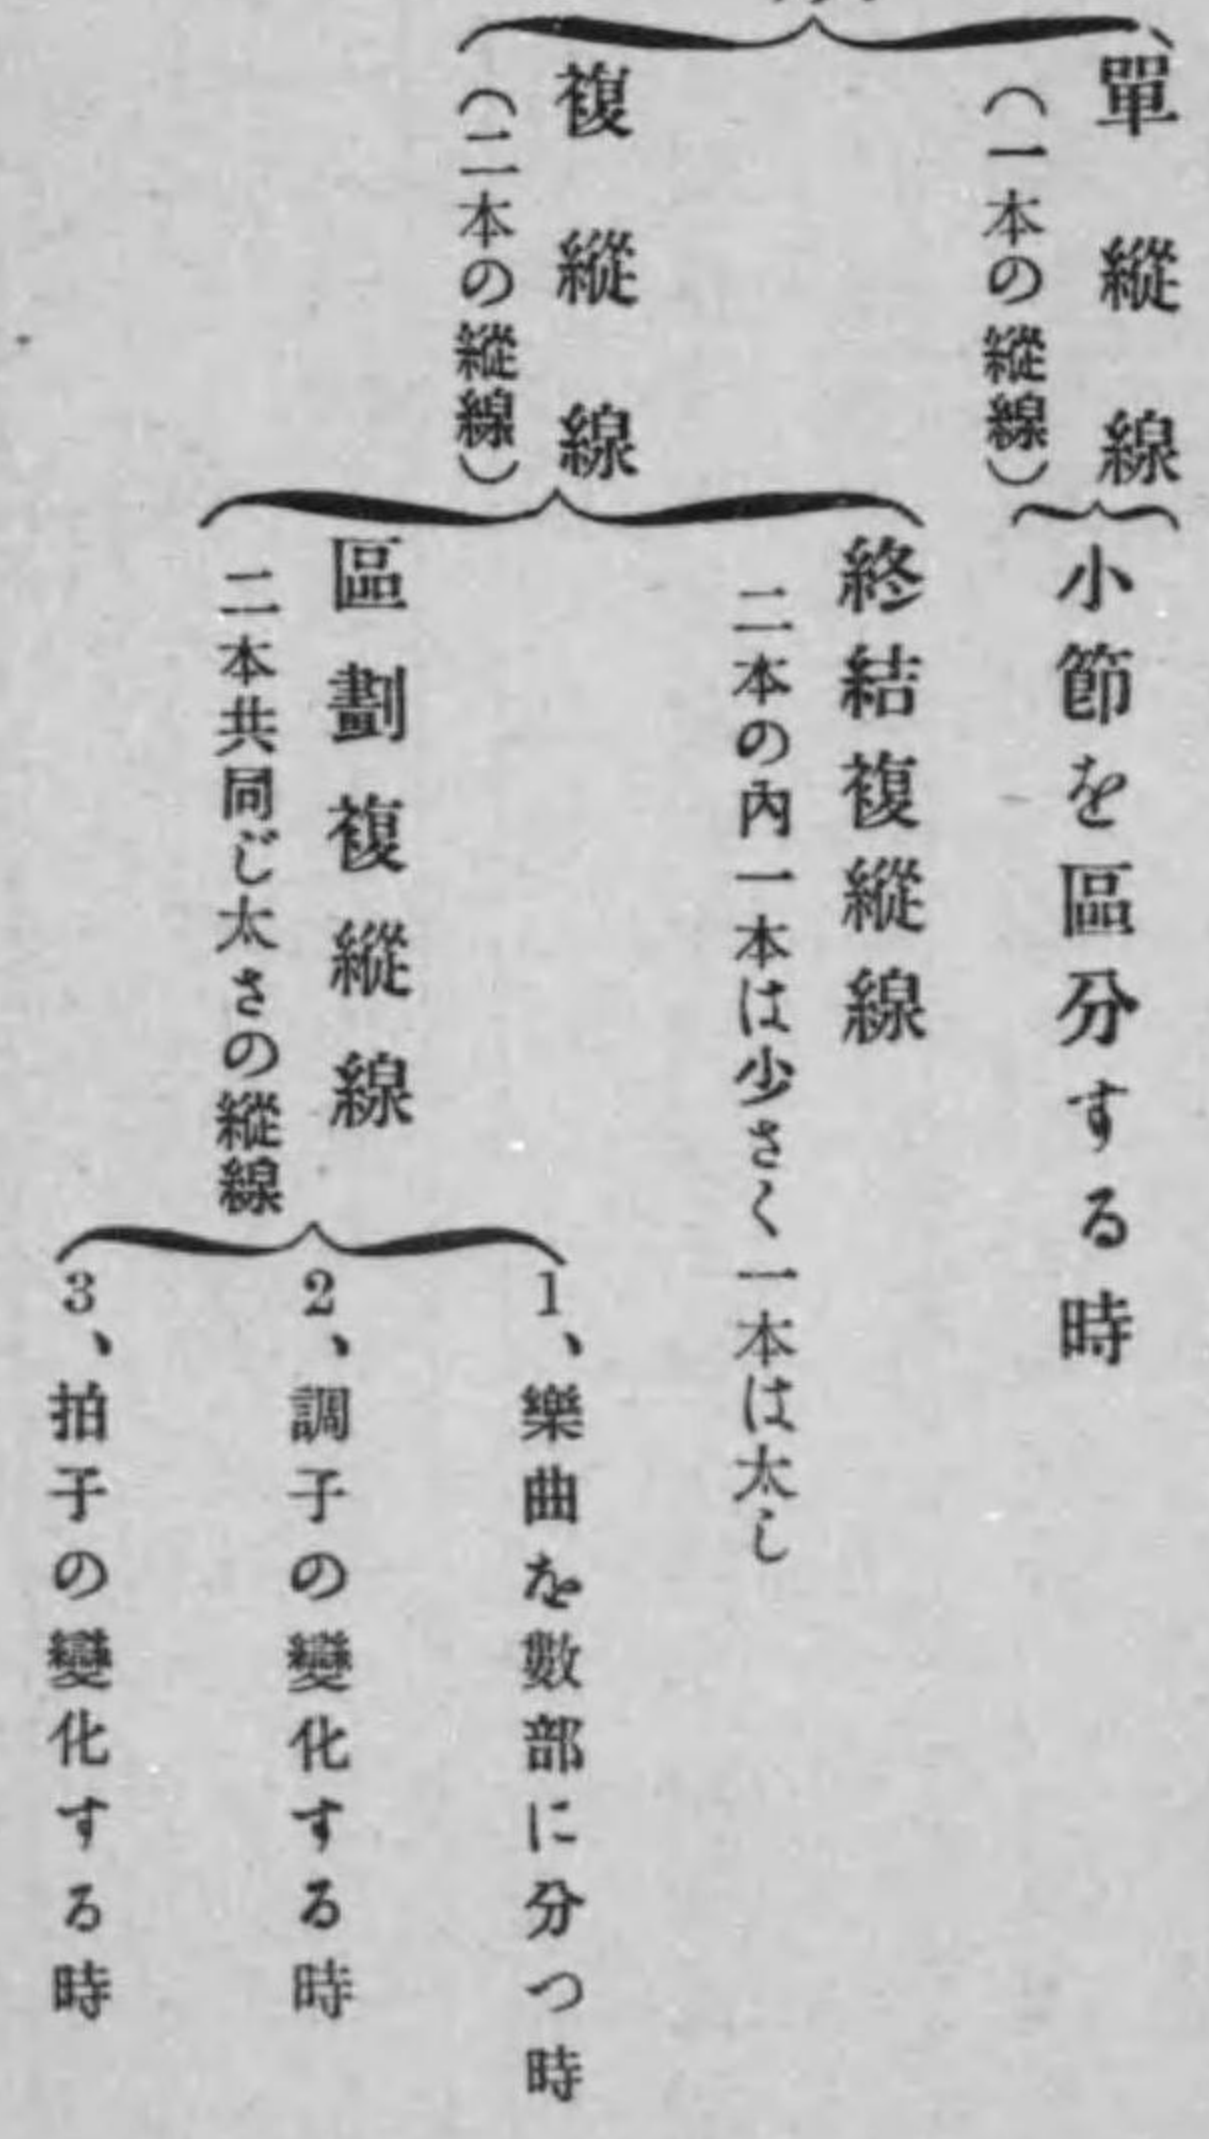 單縱線
(一本の縱線)
小節を區分する時
複縱線
(二本の縱線)
終結複縱線
二本の內一本は少さく一本は太し
區劃複縱線
二本共同じ太さの縱線
1、樂曲を數部に分つ時
2、調子の變化する時
3、拍子の變化する時